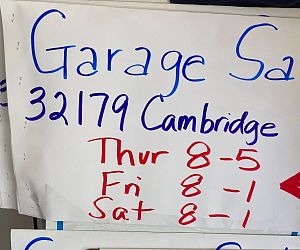 Garage Sa
32179 Cambridge
Thur 8-5
Fri 8-1
Sat 8-1